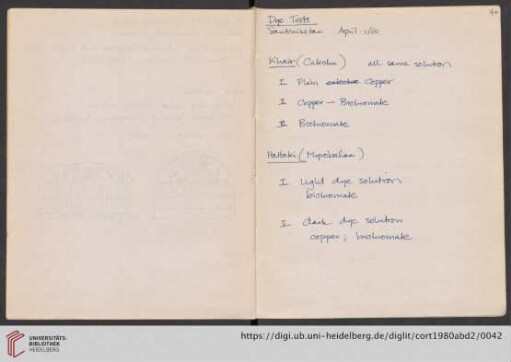 40
Dye Tests
Santiniketan April 1980
Khair (Catechu) all same solution
I Plain Copper
I Copper — Bichromate
II Bichromate
Hattaki (Myrobalan)
I light dye solution
bichromate
I dark dye solution
copper; bichromate
UNIVERSITÄTS-
BIBLIOTHEK
HEIDELBERG
https://digi.ub.uni-heidelberg.de/diglit/cort1980abd2/0042